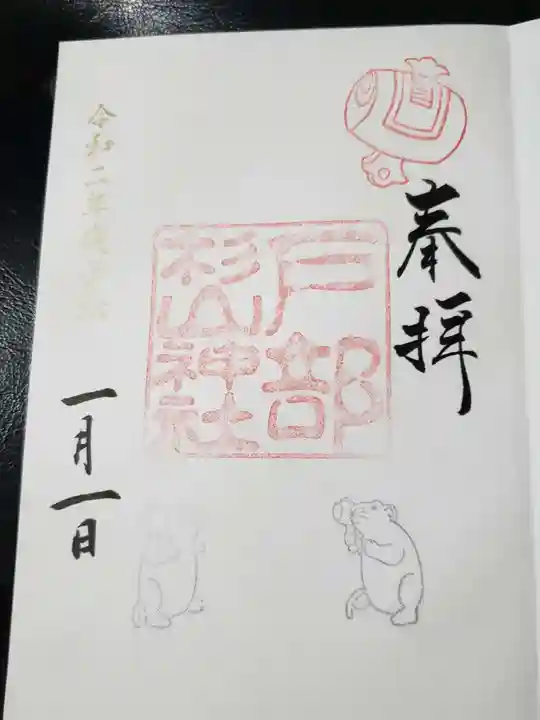 奉拝
戸部
杉山
神社
令和二年
一月一日